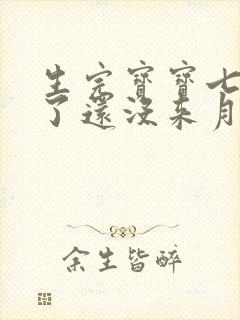 生完寶寶七
了還沒來月
余生皆醉